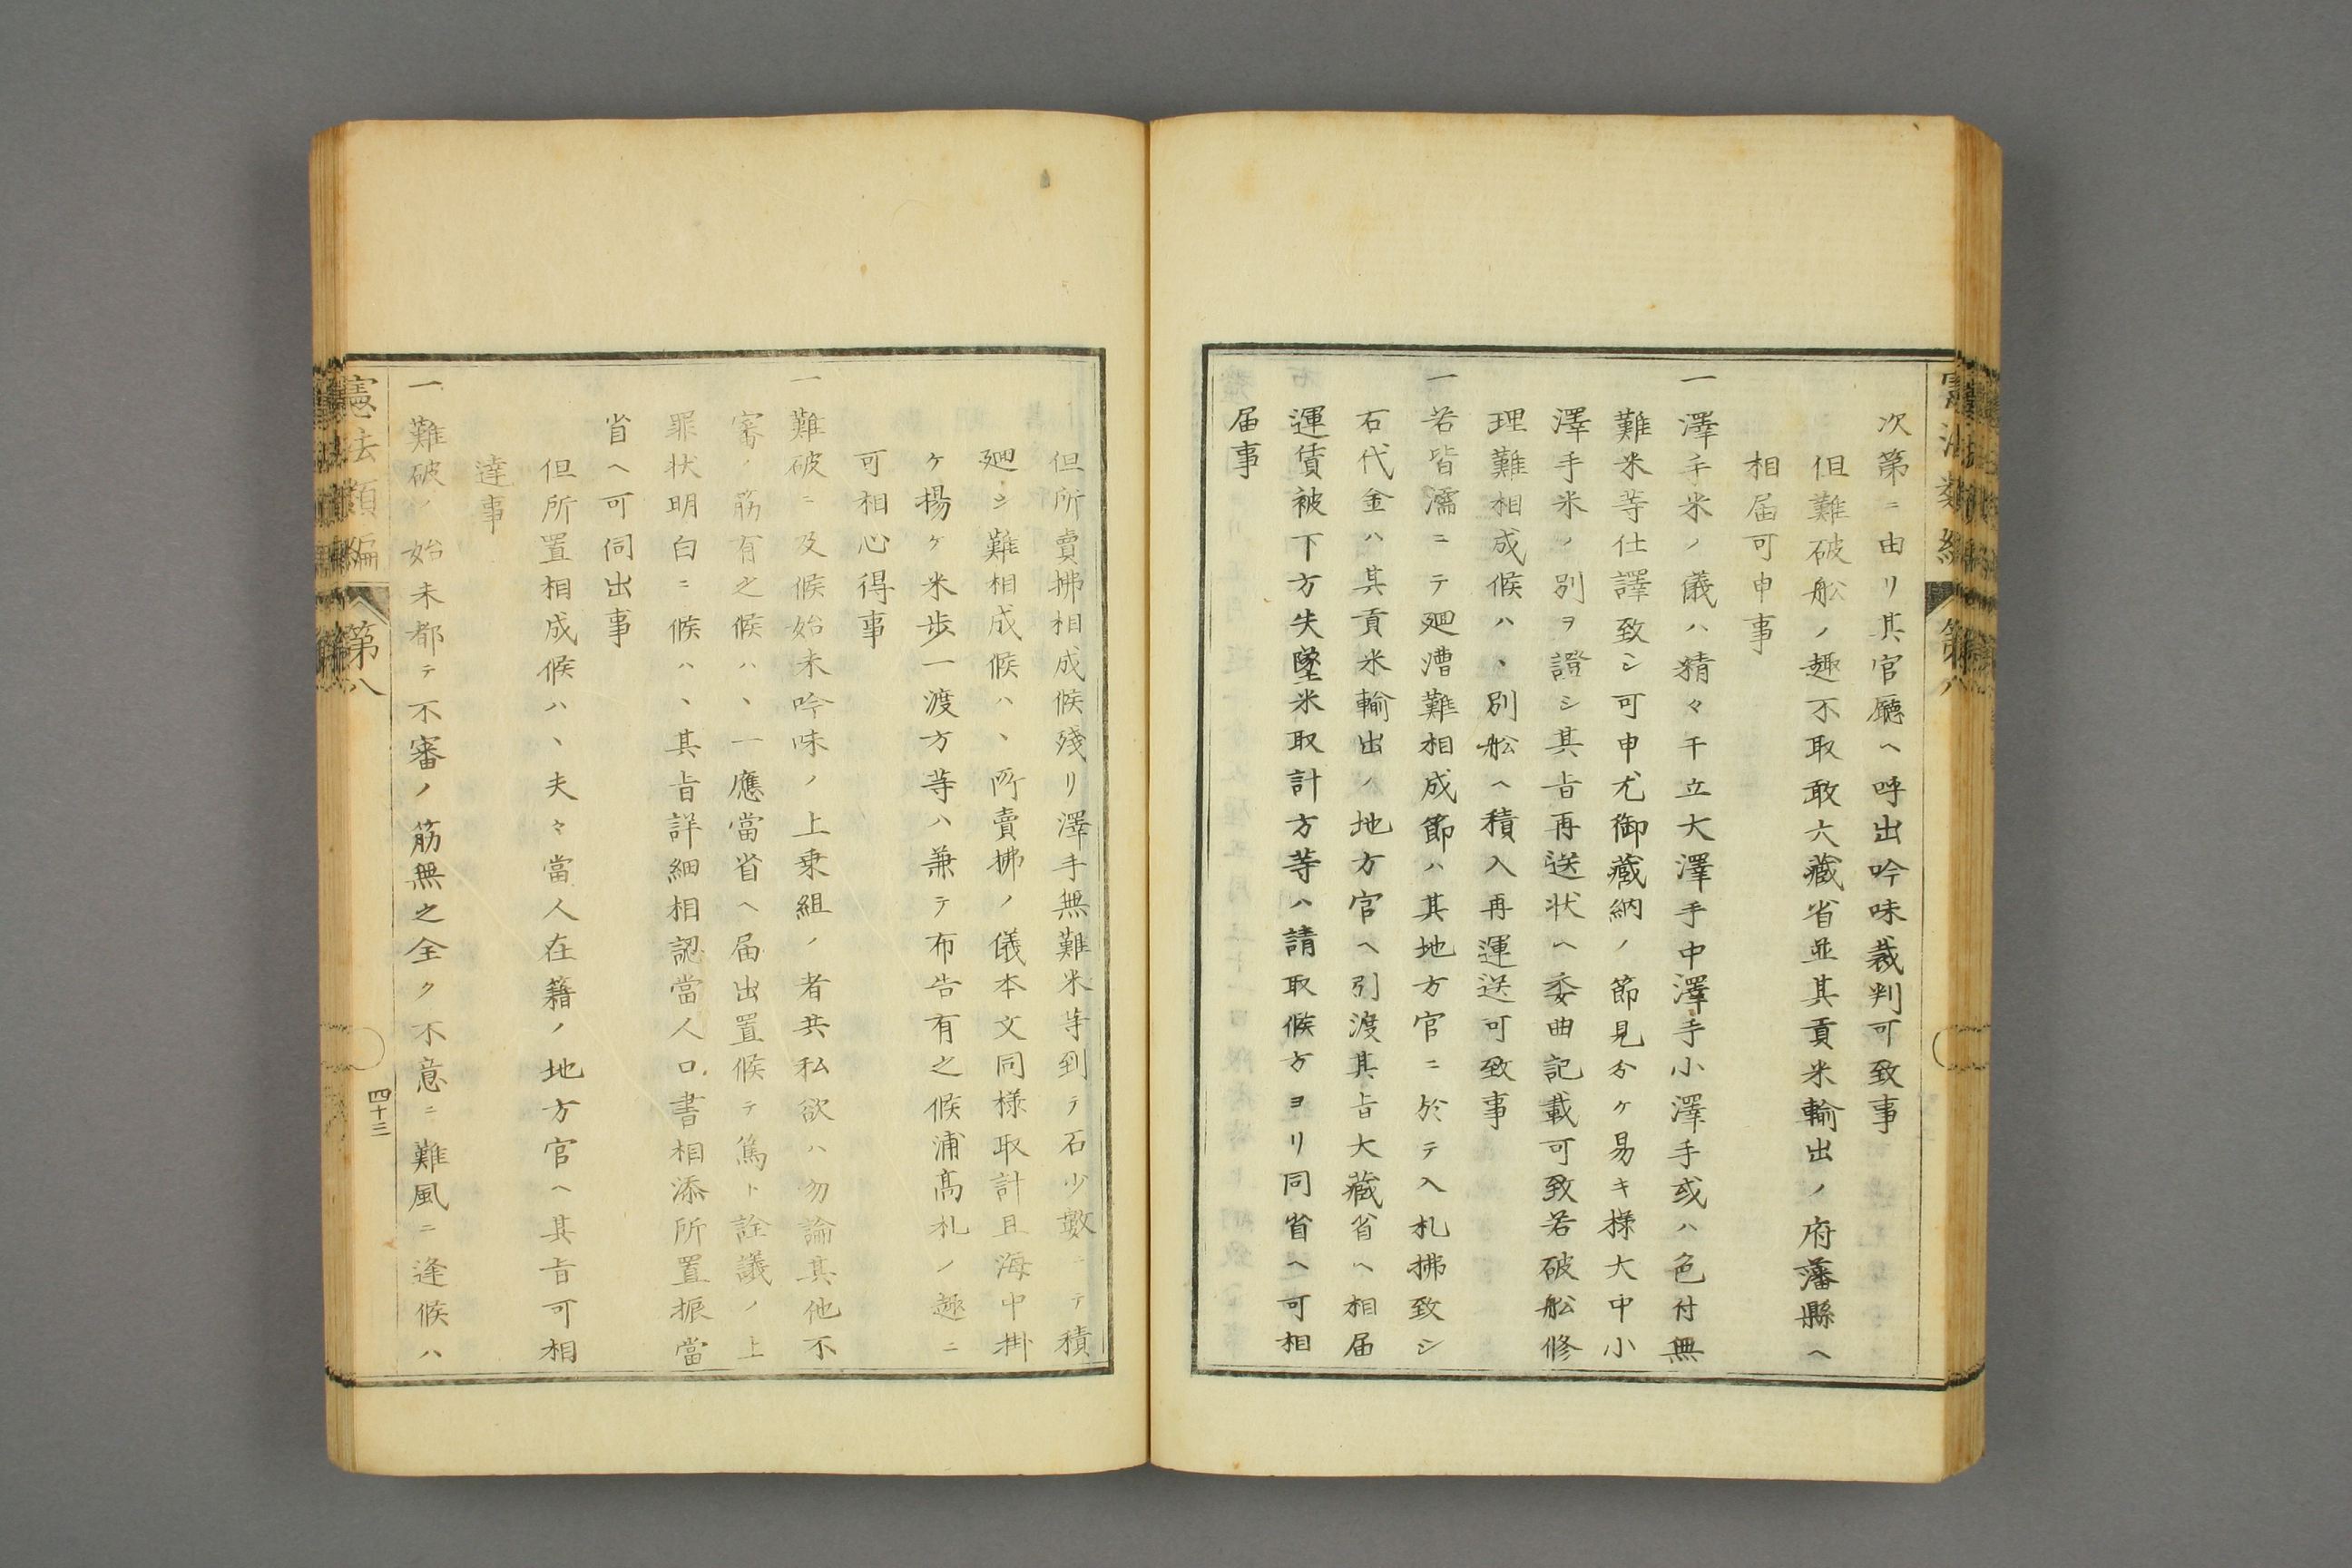 次第ニ由リ其官廳ヘ呼出吟味裁判可致事
但難破舩ノ趣不取敢大藏省並其貢米輸出ノ府藩縣ヘ
相届可申事
一澤手米ノ儀ハ精々干立大澤手中澤手小澤手或ハ色付無
難米等仕譯致シ可申尤御藏納ノ節見分ケ易キ樣大中小
澤手米ノ別ヲ證シ其旨再送状ヘ委曲記載可致若破舩修
理難相成候ハヽ別舩ヘ積入再運送可致事
一若皆濡ニテ廻漕難相成節ハ其地方官ニ於テ入札拂致シ
石代金ハ其貢米輸出ノ地方官ヘ引渡其旨大藏省ヘ相届
運賃被下方失墜米取計方等ハ請取候方ヨリ同省ヘ可相
届事
憲法類編
第八
但所賣拂相成候殘リ澤手無難米等到テ石少數ニテ積
廻シ難相成候ハヽ所賣拂ノ儀本文同樣取計且海中掛
ケ揚ケ米歩一渡方等ハ兼テ布告有之候浦高札ノ趣ニ
可相心得事
一難破ニ及候始末吟味ノ上乗組ノ者共私欲ハ勿論其他不
審ノ筋有之候ハヽ一應當省ヘ届出置候テ篤ト詮議ノ上
罪状明白ニ候ハヽ其旨詳細相認當人口書相添所置振當
省ヘ可伺出事
但所置相成候ハヽ夫々當人在籍ノ地方官ヘ其旨可相
達事
一難破ノ始末都テ不審ノ筋無之全ク不意ニ難風ニ逢候ハ
憲法類編
第八
四十三